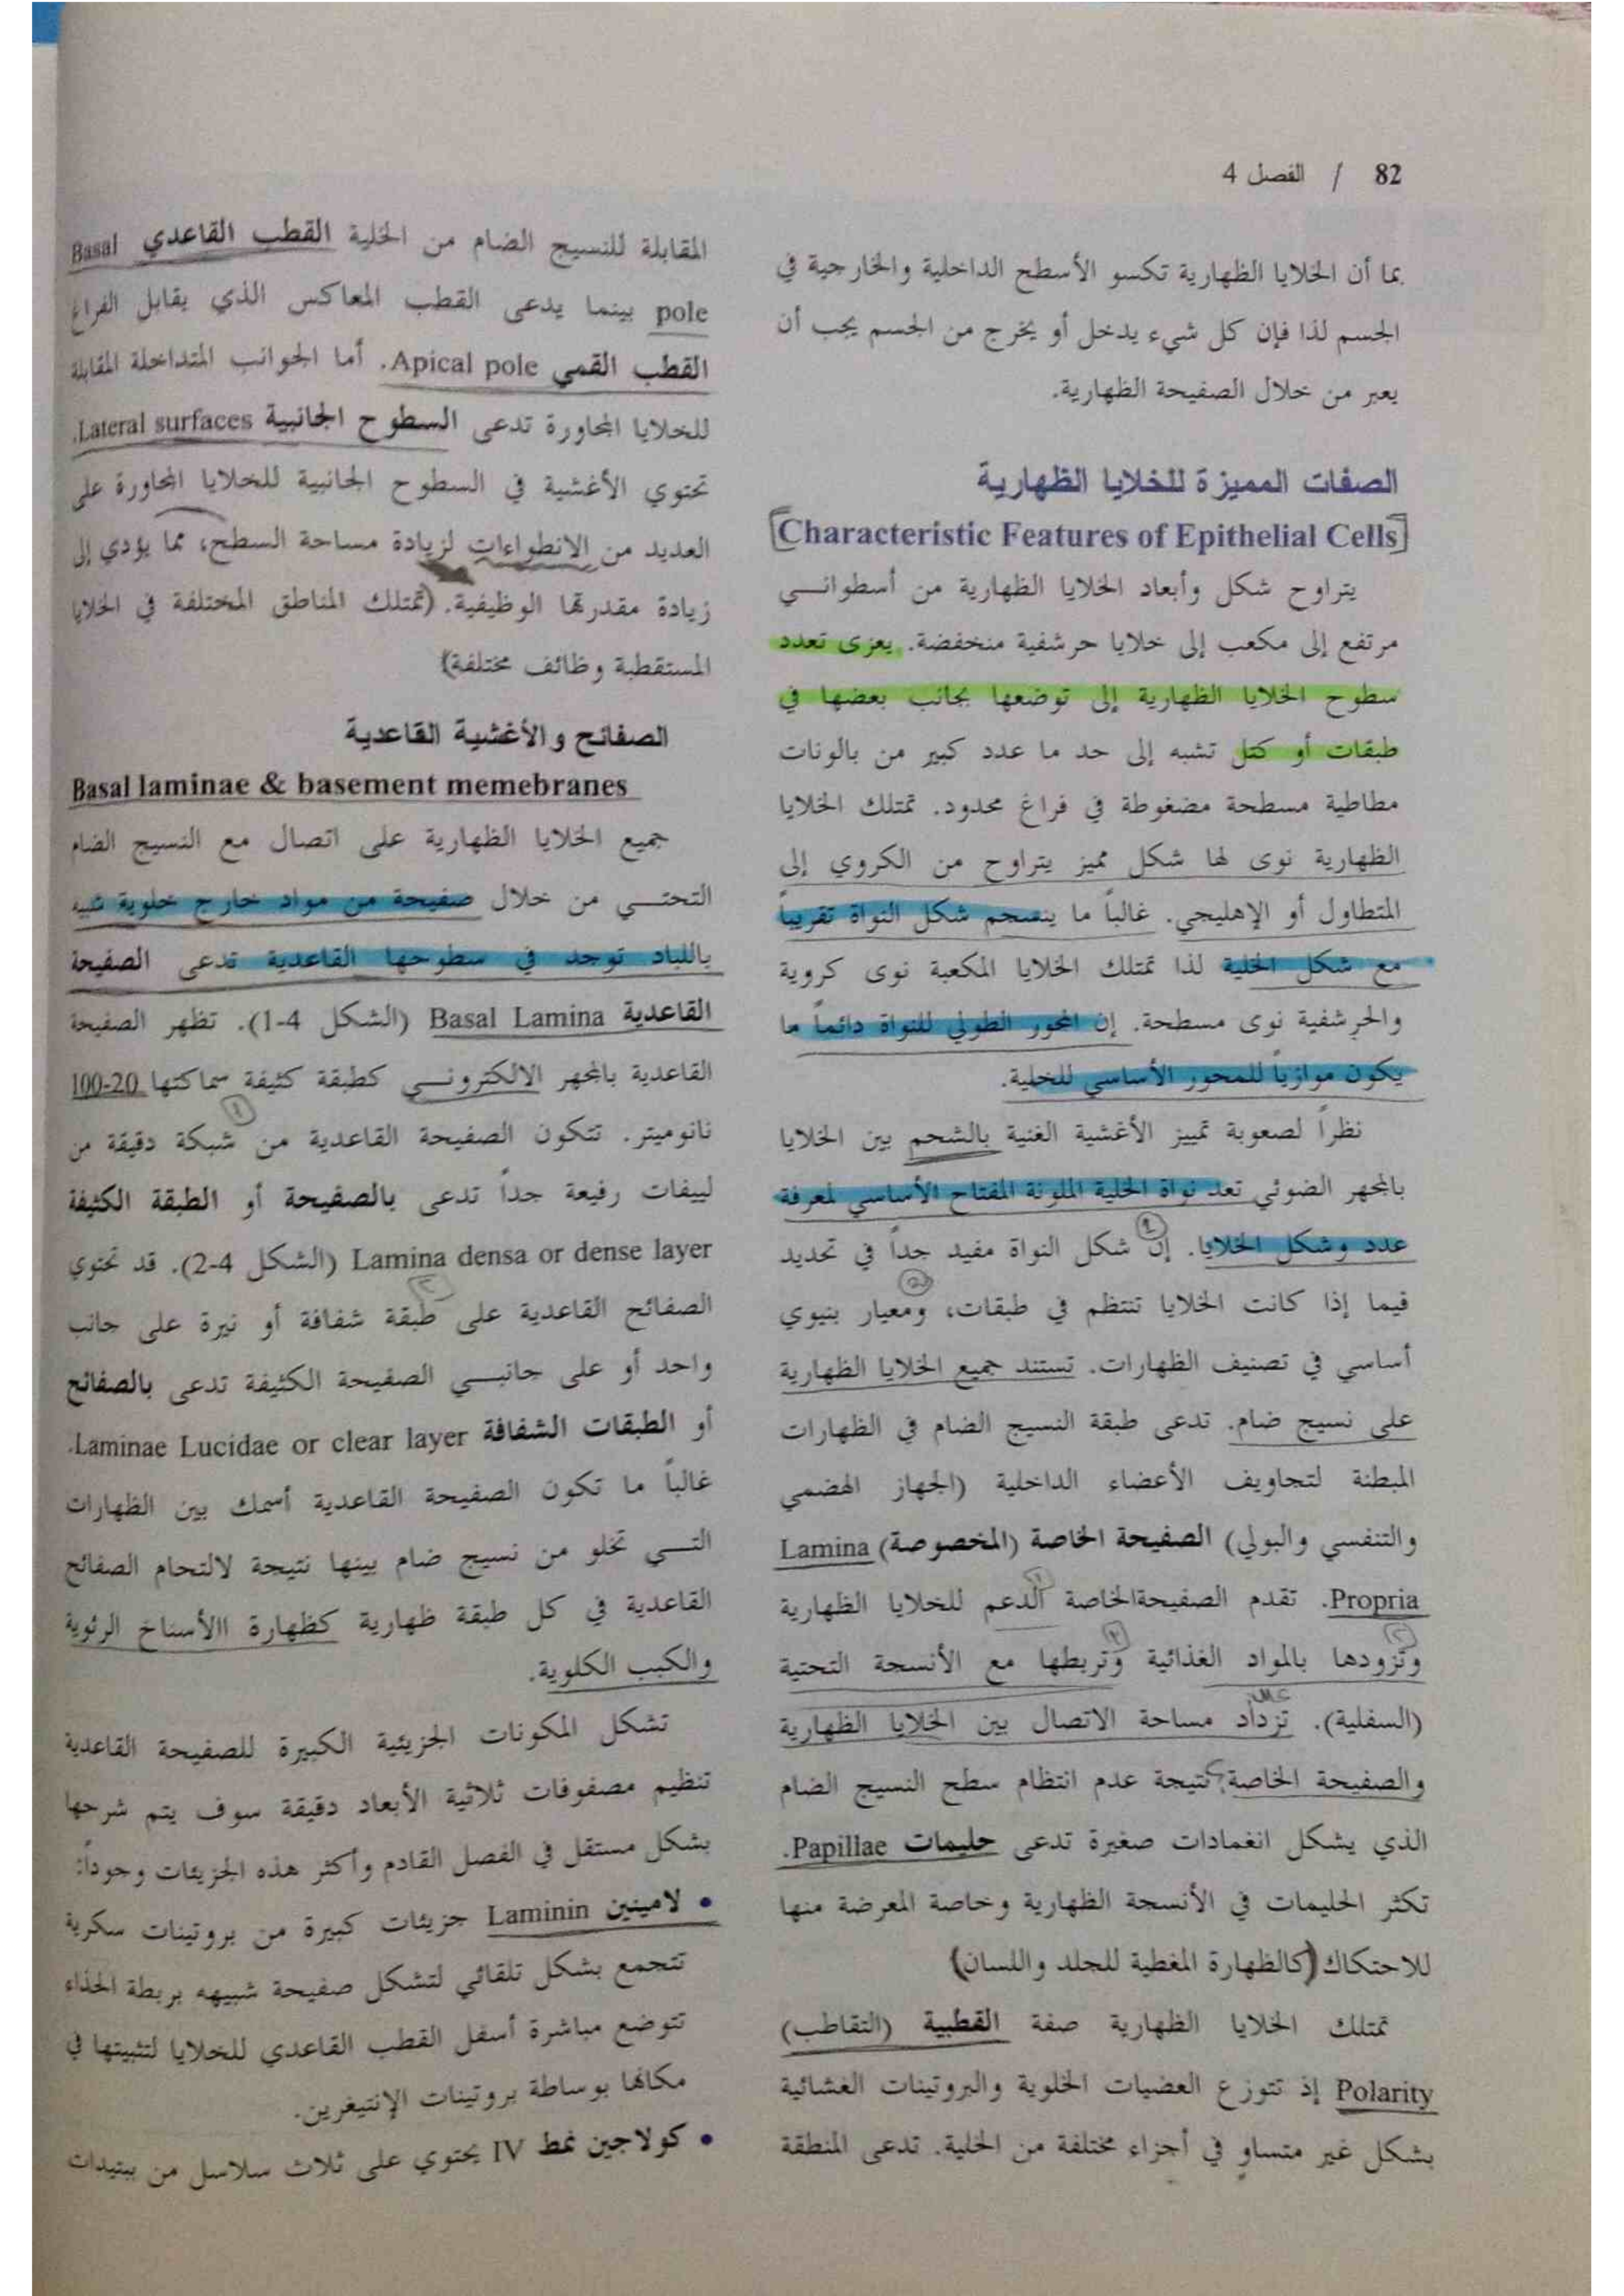 82 / الفصل 4
بما أن الخلايا الظهارية تكسو الأسطح الداخلية والخارجية في
الجسم لذا فإن كل شيء يدخل أو يخرج من الجسم يجب أن
يعبر من خلال الصفيحة الظهارية.
الصفات المميزة للخلايا الظهارية
Characteristic Features of Epithelial Cells
يتراوح شكل وأبعاد الخلايا الظهارية من أسطواني
مرتفع إلى مكعب إلى خلايا حرشفية منخفضة. يعزى تعدد
سطوح الخلايا الظهارية إلى توضعها بجانب بعضها في
طبقات أو كتل تشبه إلى حد ما عدد كبير من بالونات
مطاطية مسطحة مضغوطة في فراغ محدود. تمتلك الخلايا
الظهارية نوى لها شكل مميز يتراوح من الكروي إلى
المتطاول أو الإهليجي. غالباً ما ينسجم شكل النواة تقريباً
مع شكل الخلية لذا تمتلك الخلايا المكعبة نوى كروية
والحرشفية نوى مسطحة. إن المحور الطولي للنواة دائماً ما
يكون موازياً للمحور الأساسي للخلية.
نظراً لصعوبة تمييز الأغشية الغنية بالشحم بين الخلايا
بالمجهر الضوئي تعد نواة الخلية الملونة المفتاح الأساسي لمعرفة
عدد وشكل الخلايا. إن شكل النواة مفيد جداً في تحديد
فيما إذا كانت الخلايا تنتظم في طبقات، ومعيار بنيوي
أساسي في تصنيف الظهارات. تستند جميع الخلايا الظهارية
على نسيج ضام. تدعى طبقة النسيج الضام في الظهارات
المبطنة لتجاويف الأعضاء الداخلية (الجهاز الهضمي
والتنفسي والبولي) الصفيحة الخاصة (المخصوصة) Lamina
Propria. تقدم الصفيحةالخاصة الدعم للخلايا الظهارية
وتزودها بالمواد الغذائية وتربطها مع الأنسجة التحتية
(السفلية). تزداد مساحة الاتصال بين الخلايا الظهارية
والصفيحة الخاصة نتيجة عدم انتظام سطح النسيج الضام
الذي يشكل انغمادات صغيرة تدعى حليمات Papillae.
تكثر الحليمات في الأنسجة الظهارية وخاصة المعرضة منها
للاحتكاك (كالظهارة المغطية للجلد واللسان)
تمتلك الخلايا الظهارية صفة القطبية (التقاطب)
Polarity إذ تتوزع العضيات الخلوية والبروتينات الغشائية
بشكل غير متساوٍ في أجزاء مختلفة من الخلية. تدعى المنطقة
المقابلة للنسيج الضام من الخلية القطب القاعدي Basal
pole بينما يدعى القطب المعاكس الذي يقابل الفراغ
القطب القمي Apical pole. أما الجوانب المتداخلة المقابلة
للخلايا المجاورة تدعى السطوح الجانبية Lateral surfaces.
تحتوي الأغشية في السطوح الجانبية للخلايا المجاورة على
العديد من الانطواءات لزيادة مساحة السطح، مما يؤدي إلى
زيادة مقدرتها الوظيفية. (تمتلك المناطق المختلفة في الخلايا
المستقطبة وظائف مختلفة)
الصفائح والأغشية القاعدية
Basal laminae & basement memebranes
جميع الخلايا الظهارية على اتصال مع النسيج الضام
التحتي من خلال صفيحة من مواد خارج خلوية شبيه
باللباد توجد في سطوحها القاعدية تدعى الصفيحة
القاعدية Basal Lamina (الشكل 4-1). تظهر الصفيحة
القاعدية بالمجهر الالكتروني كطبقة كثيفة سماكتها 20-100
نانوميتر. تتكون الصفيحة القاعدية من شبكة دقيقة من
لييفات رفيعة جداً تدعى بالصفيحة أو الطبقة الكثيفة
Lamina densa or dense layer (الشكل 4-2). قد تحتوي
الصفائح القاعدية على طبقة شفافة أو نيرة على جانب
واحد أو على جانبي الصفيحة الكثيفة تدعى بالصفائح
أو الطبقات الشفافة Laminae Lucidae or clear layer.
غالباً ما تكون الصفيحة القاعدية أسمك بين الظهارات
التي تخلو من نسيج ضام بينها نتيجة لالتحام الصفائح
القاعدية في كل طبقة ظهارية كظهارة االأسناخ الرئوية
والكبب الكلوية.
تشكل المكونات الجزيئية الكبيرة للصفيحة القاعدية
تنظيم مصفوفات ثلاثية الأبعاد دقيقة سوف يتم شرحها
بشكل مستقل في الفصل القادم وأكثر هذه الجزيئات وجوداً:
• لامينين Laminin جزيئات كبيرة من بروتينات سكرية
تتجمع بشكل تلقائي لتشكل صفيحة شبيهه بربطة الحذاء
تتوضع مباشرة أسفل القطب القاعدي للخلايا لتثبيتها في
مكانها بوساطة بروتينات الإنتيغرين.
• كولاجين نمط IV يحتوي على ثلاث سلاسل من ببتيدات